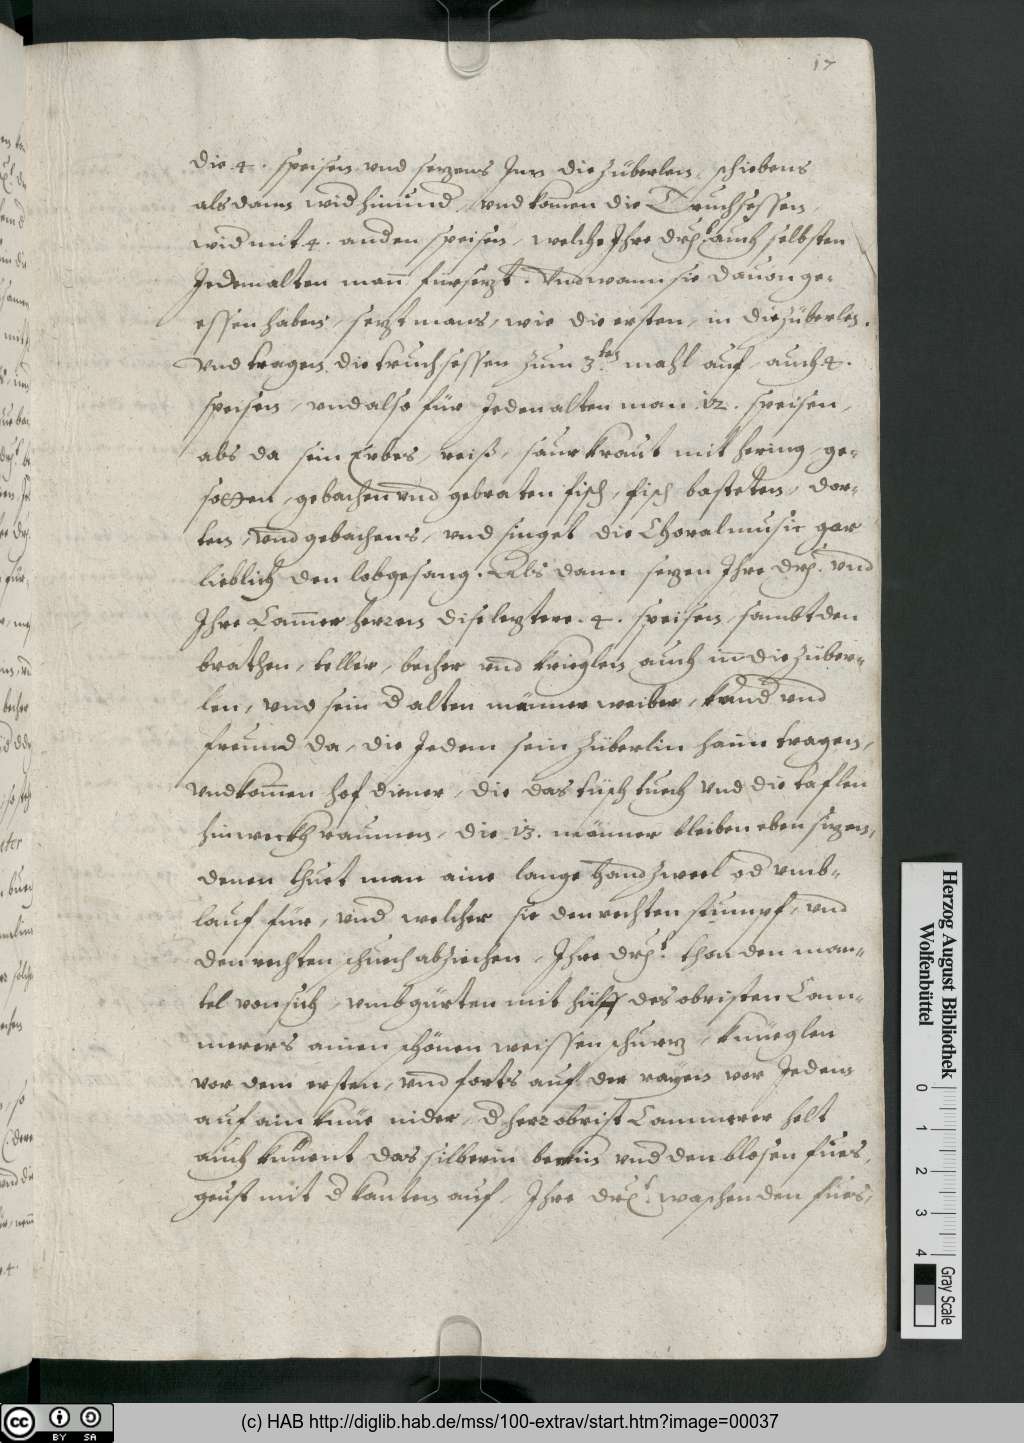 17
die 4. speisen vnd sezens Inn die züberlen, schiebens
alsdann wid hinumd, vnd komen die Truchsessen,
wid mit 4. anden speisen, welche Ihre drht. auch selbsten
Jedem alten man fürsezt. Vnd wann sie dauon ge-
essen haben, sezt mans, wie die ersten, in die züberlen.
vnd tragen die truchsessen zum 3ten mahl auf, auch 4.
speisen, vnd also für Jeden alten man 12. speisen,
als da sein Erbes, reiß, saur kraut mit hering, ge-
sotten, gebachen vnd gebraten fisch, fisch basteten, dor-
ten, vnd gebachens, vnd singet die Choral music gar
lieblich den lobgesang. Als dann sezen Ihre drht. vnd
Ihre Camer herren dise leztere 4. speisen, sambt den
brathen, teller, becher vnd krieglen auch in die züber-
len, vnd sein d alten männer weiber, kind vnd
freund da, die Jedem sein züberlin haim tragen,
vnd komen hof diener, die das tischtuech vnd die taflen
hinweckh raumen, die 13. männer bleiben eben sizen,
denen thuet man aine lange handzwel od vmb-
lauf für, vnd welcher sie den rechten strumpf, vnd
den rechten schuech abziechen, Ihre drht. thon den man-
tel von sich, vmbgürten mit hülf des obristen Cam-
merers ainen schönen weissen schurz, knüeglen
vor dem ersten, vnd forts auf der rayen vor Jedem
auf ain knüe nider, d herr obrist Cammerer helt
auch knüent das silberin bekin vnd den blosen fues,
geust mit d kanten auf, Ihre drht. waschen den fues,
Herzog August Bibliothek
Wolfenbüttel
0 1 2 3 4
Gray Scale
cc BY SA
(c) HAB http://diglib.hab.de/mss/100-extrav/start.htm?image=00037